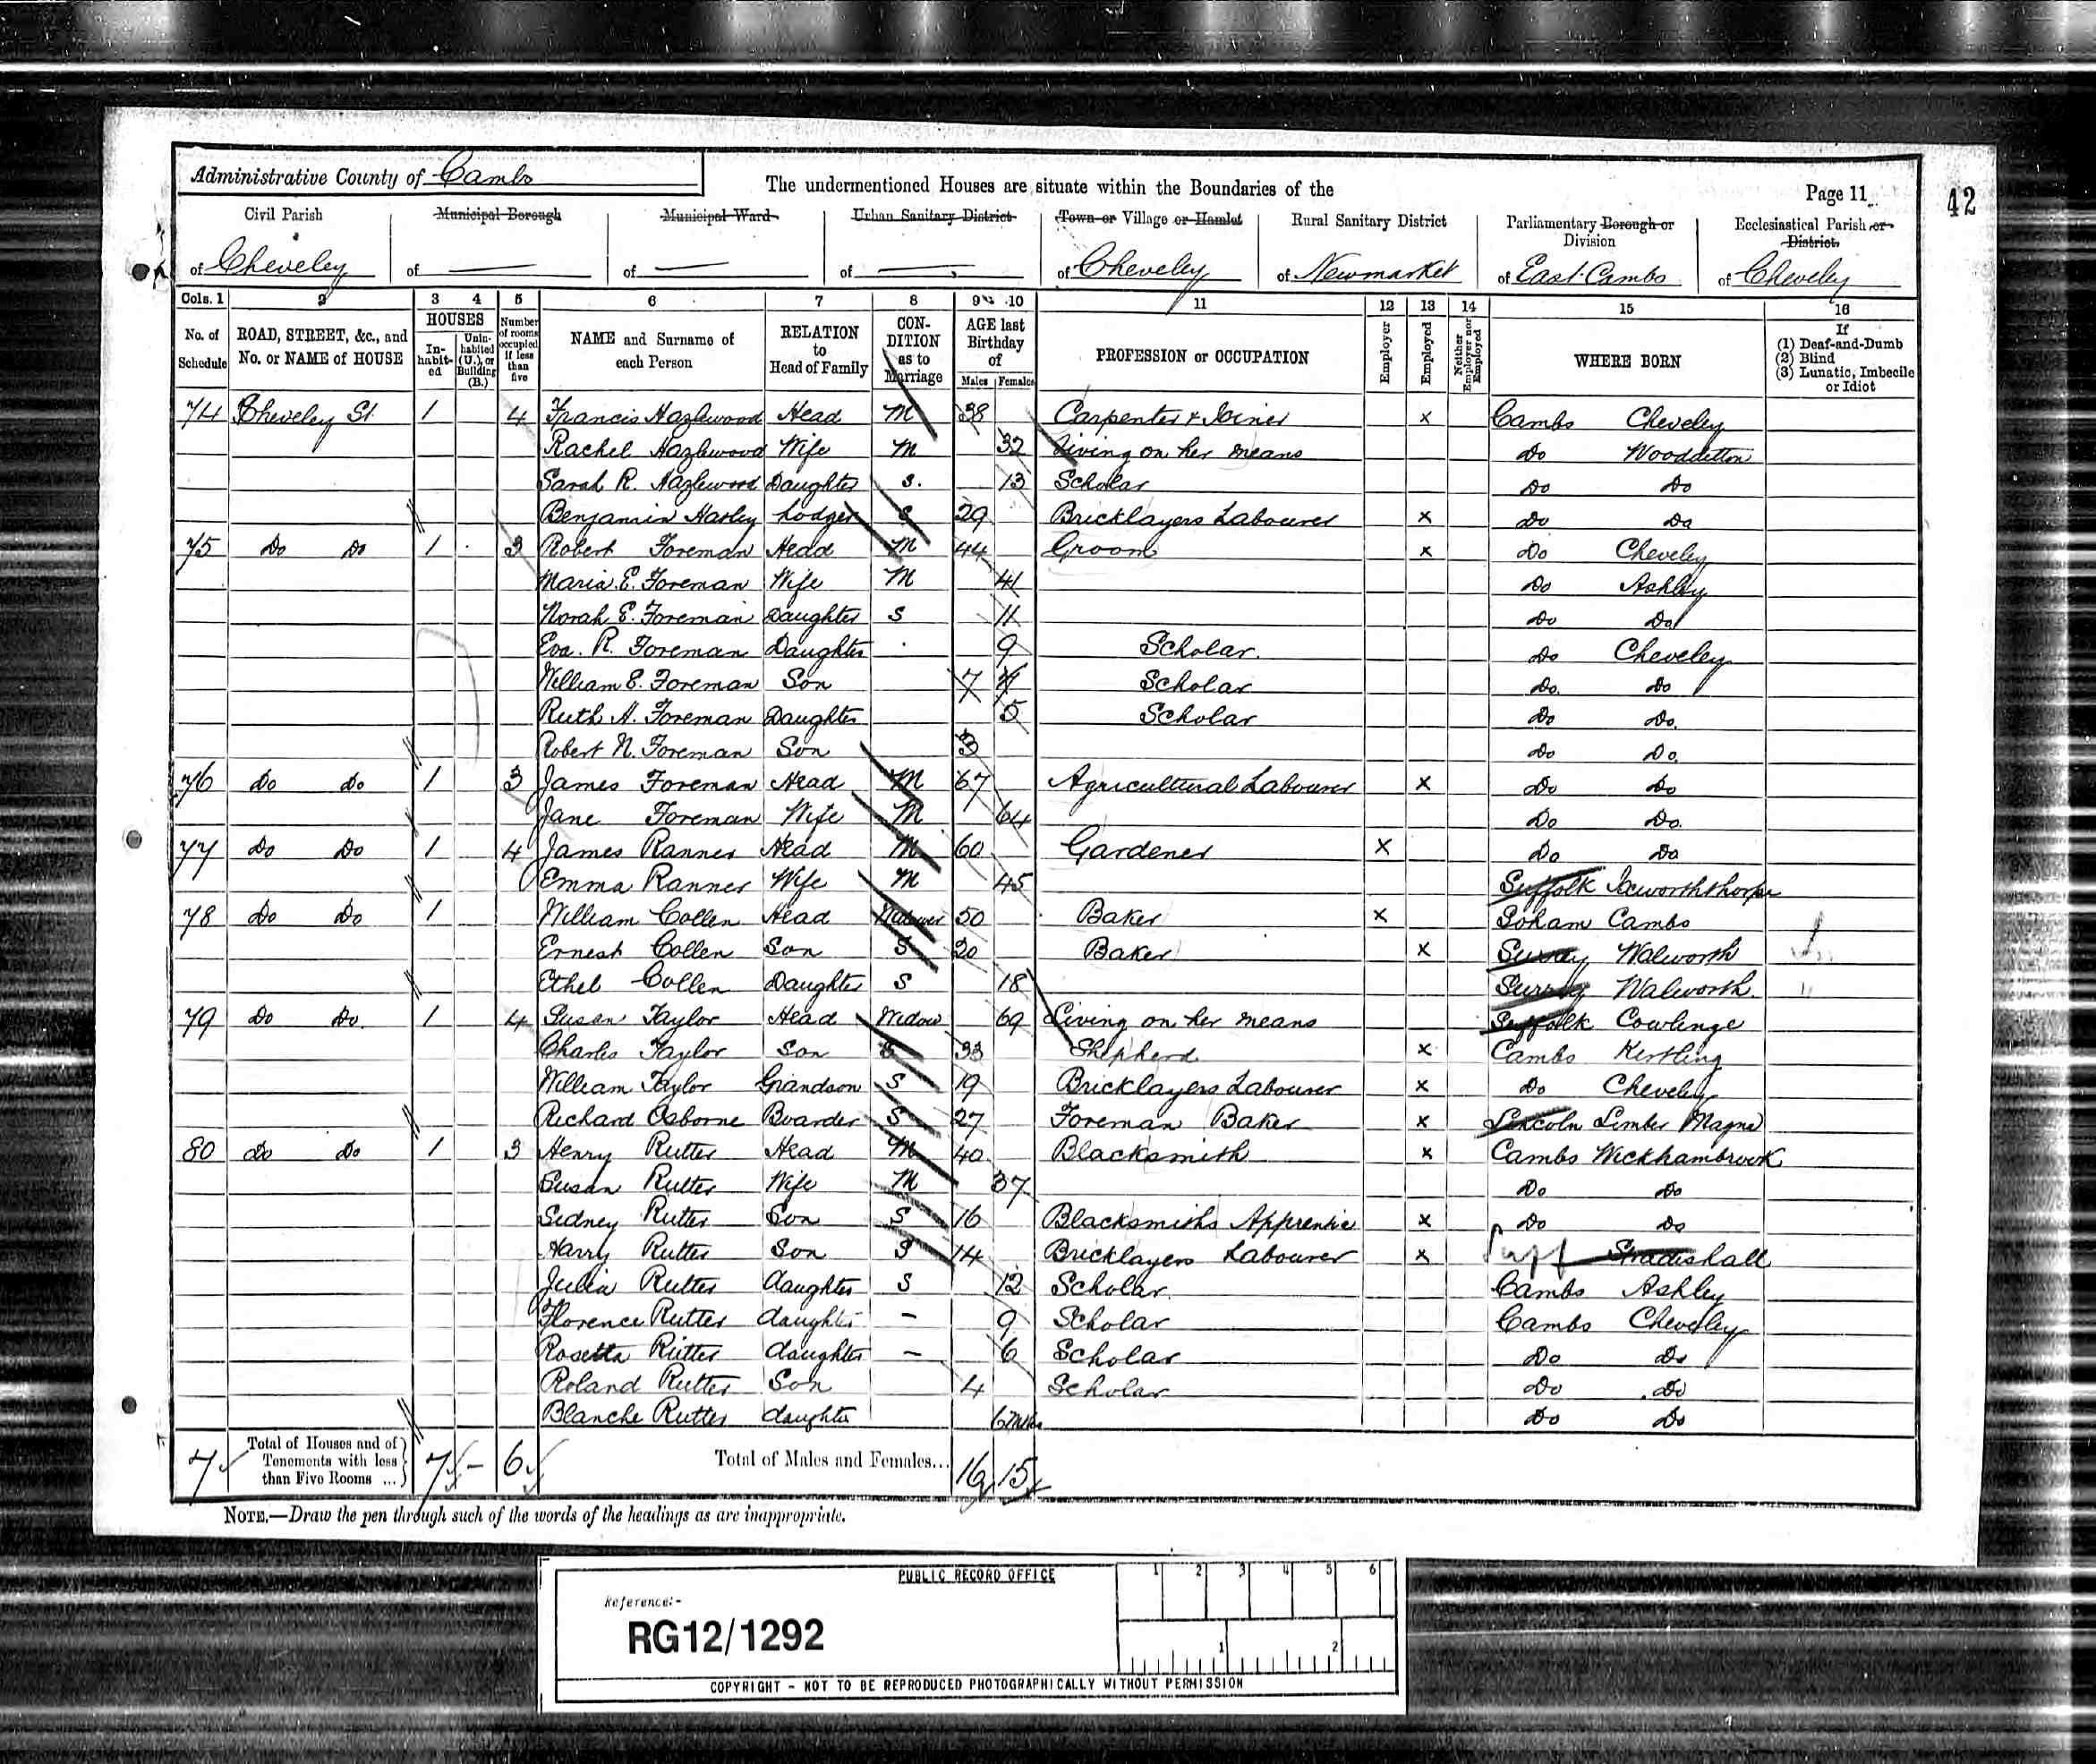 Administrative County of Cambs
The undermentioned Houses are situate within the Boundaries of the
Page 11
42
Civil Parish Municipal Borough Municipal Ward Urban Sanitary District Town or Village or Hamlet Rural Sanitary District Parliamentary Borough or Division Ecclesiastical Parish or District
of Cheveley of — of — of — of Cheveley of Newmarket of East Cambs of Cheveley
Cols. 1 2 3 4 5 6 7 8 9 10 11 12 13 14 15 16
No. of Schedule ROAD, STREET, &c., and No. or NAME of HOUSE HOUSES Inhabited Uninhabited (U.), or Building (B.) Number of rooms occupied if less than five NAME and Surname of each Person RELATION to Head of Family CONDITION as to Marriage AGE last Birthday of Males Females PROFESSION or OCCUPATION Employer Employed Neither Employer nor Employed WHERE BORN If (1) Deaf-and-Dumb (2) Blind (3) Lunatic, Imbecile or Idiot
74 Cheveley St 1 4 Francis Hazlewood Head M 38 Carpenter & Joiner x Cambs Cheveley
Rachel Hazlewood Wife M 32 Living on her means Do Woodditton
Sarah R. Hazlewood Daughter S. 13 Scholar Do Do
Benjamin Lodger S 29 Bricklayers Labourer x Do Do
75 Do Do 1 3 Robert Foreman Head M 44 Groom x Do Cheveley
Maria E. Foreman Wife M 41 Do Ashley
Norah E. Foreman Daughter S 11 Do Do
Eva. R. Foreman Daughter 9 Scholar. Do Cheveley
William E. Foreman Son 7 Scholar Do. Do
Ruth A. Foreman Daughter 5 Scholar Do Do.
Robert N. Foreman Son 3 Do Do.
76 Do Do 1 3 James Foreman Head M 67 Agricultural Labourer x Do Do
Jane Foreman Wife M 64 Do Do.
77 Do Do 1 4 James Ranner Head M 60 Gardener x Do Do
Emma Ranner Wife M 45 Suffolk Ixworththorpe
78 Do Do 1 William Collen Head Widower 50 Baker x Soham Cambs
Ernest Collen Son S 20 Baker x Surrey Walworth
Ethel Collen Daughter S 18 Surrey Walworth.
79 Do Do. 1 4 Susan Taylor Head Widow 69 Living on her means Suffolk Cowlenge
Charles Taylor Son S 33 Shepherd x Cambs Kirtling
William Taylor Grandson S 19 Bricklayers Labourer x Do Cheveley
Richard Osborne Boarder S 27 Foreman Baker x Lincoln Limber Magna
80 Do Do 1 3 Henry Rutter Head M 40 Blacksmith x Cambs Wickhambrook
Susan Rutter Wife M 37 Do Do
Sidney Rutter Son S 16 Blacksmiths Apprentice x Do Do
Harry Rutter Son S 14 Bricklayers Labourer x Suff Stradishall
Julia Rutter daughter S 12 Scholar Cambs Ashley
Florence Rutter daughter — 9 Scholar Cambs Cheveley
Rosetta Rutter daughter — 6 Scholar Do Do
Roland Rutter Son 4 Scholar Do Do
Blanche Rutter daughter Do Do
7 Total of Houses and of Tenements with less than Five Rooms ... 7 – 6 Total of Males and Females... 16 15
NOTE.—Draw the pen through such of the words of the headings as are inappropriate.
PUBLIC RECORD OFFICE
1 2 3 4 5 6
Reference:-
RG12/1292
1 2
COPYRIGHT - NOT TO BE REPRODUCED PHOTOGRAPHICALLY WITHOUT PERMISSION